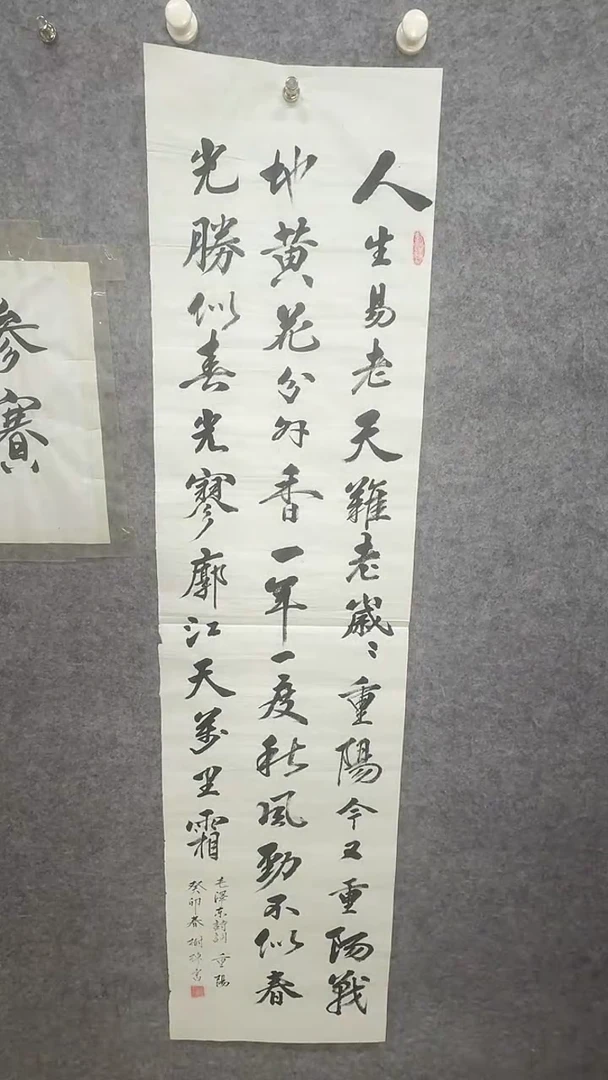 人生易老天難老歲〻重陽今又重陽戰
地黄花分外香一年一度秋風勁不似春
光勝似春光寥廓江天萬里霜
毛澤东詩詞 重陽
癸卯春
參賽